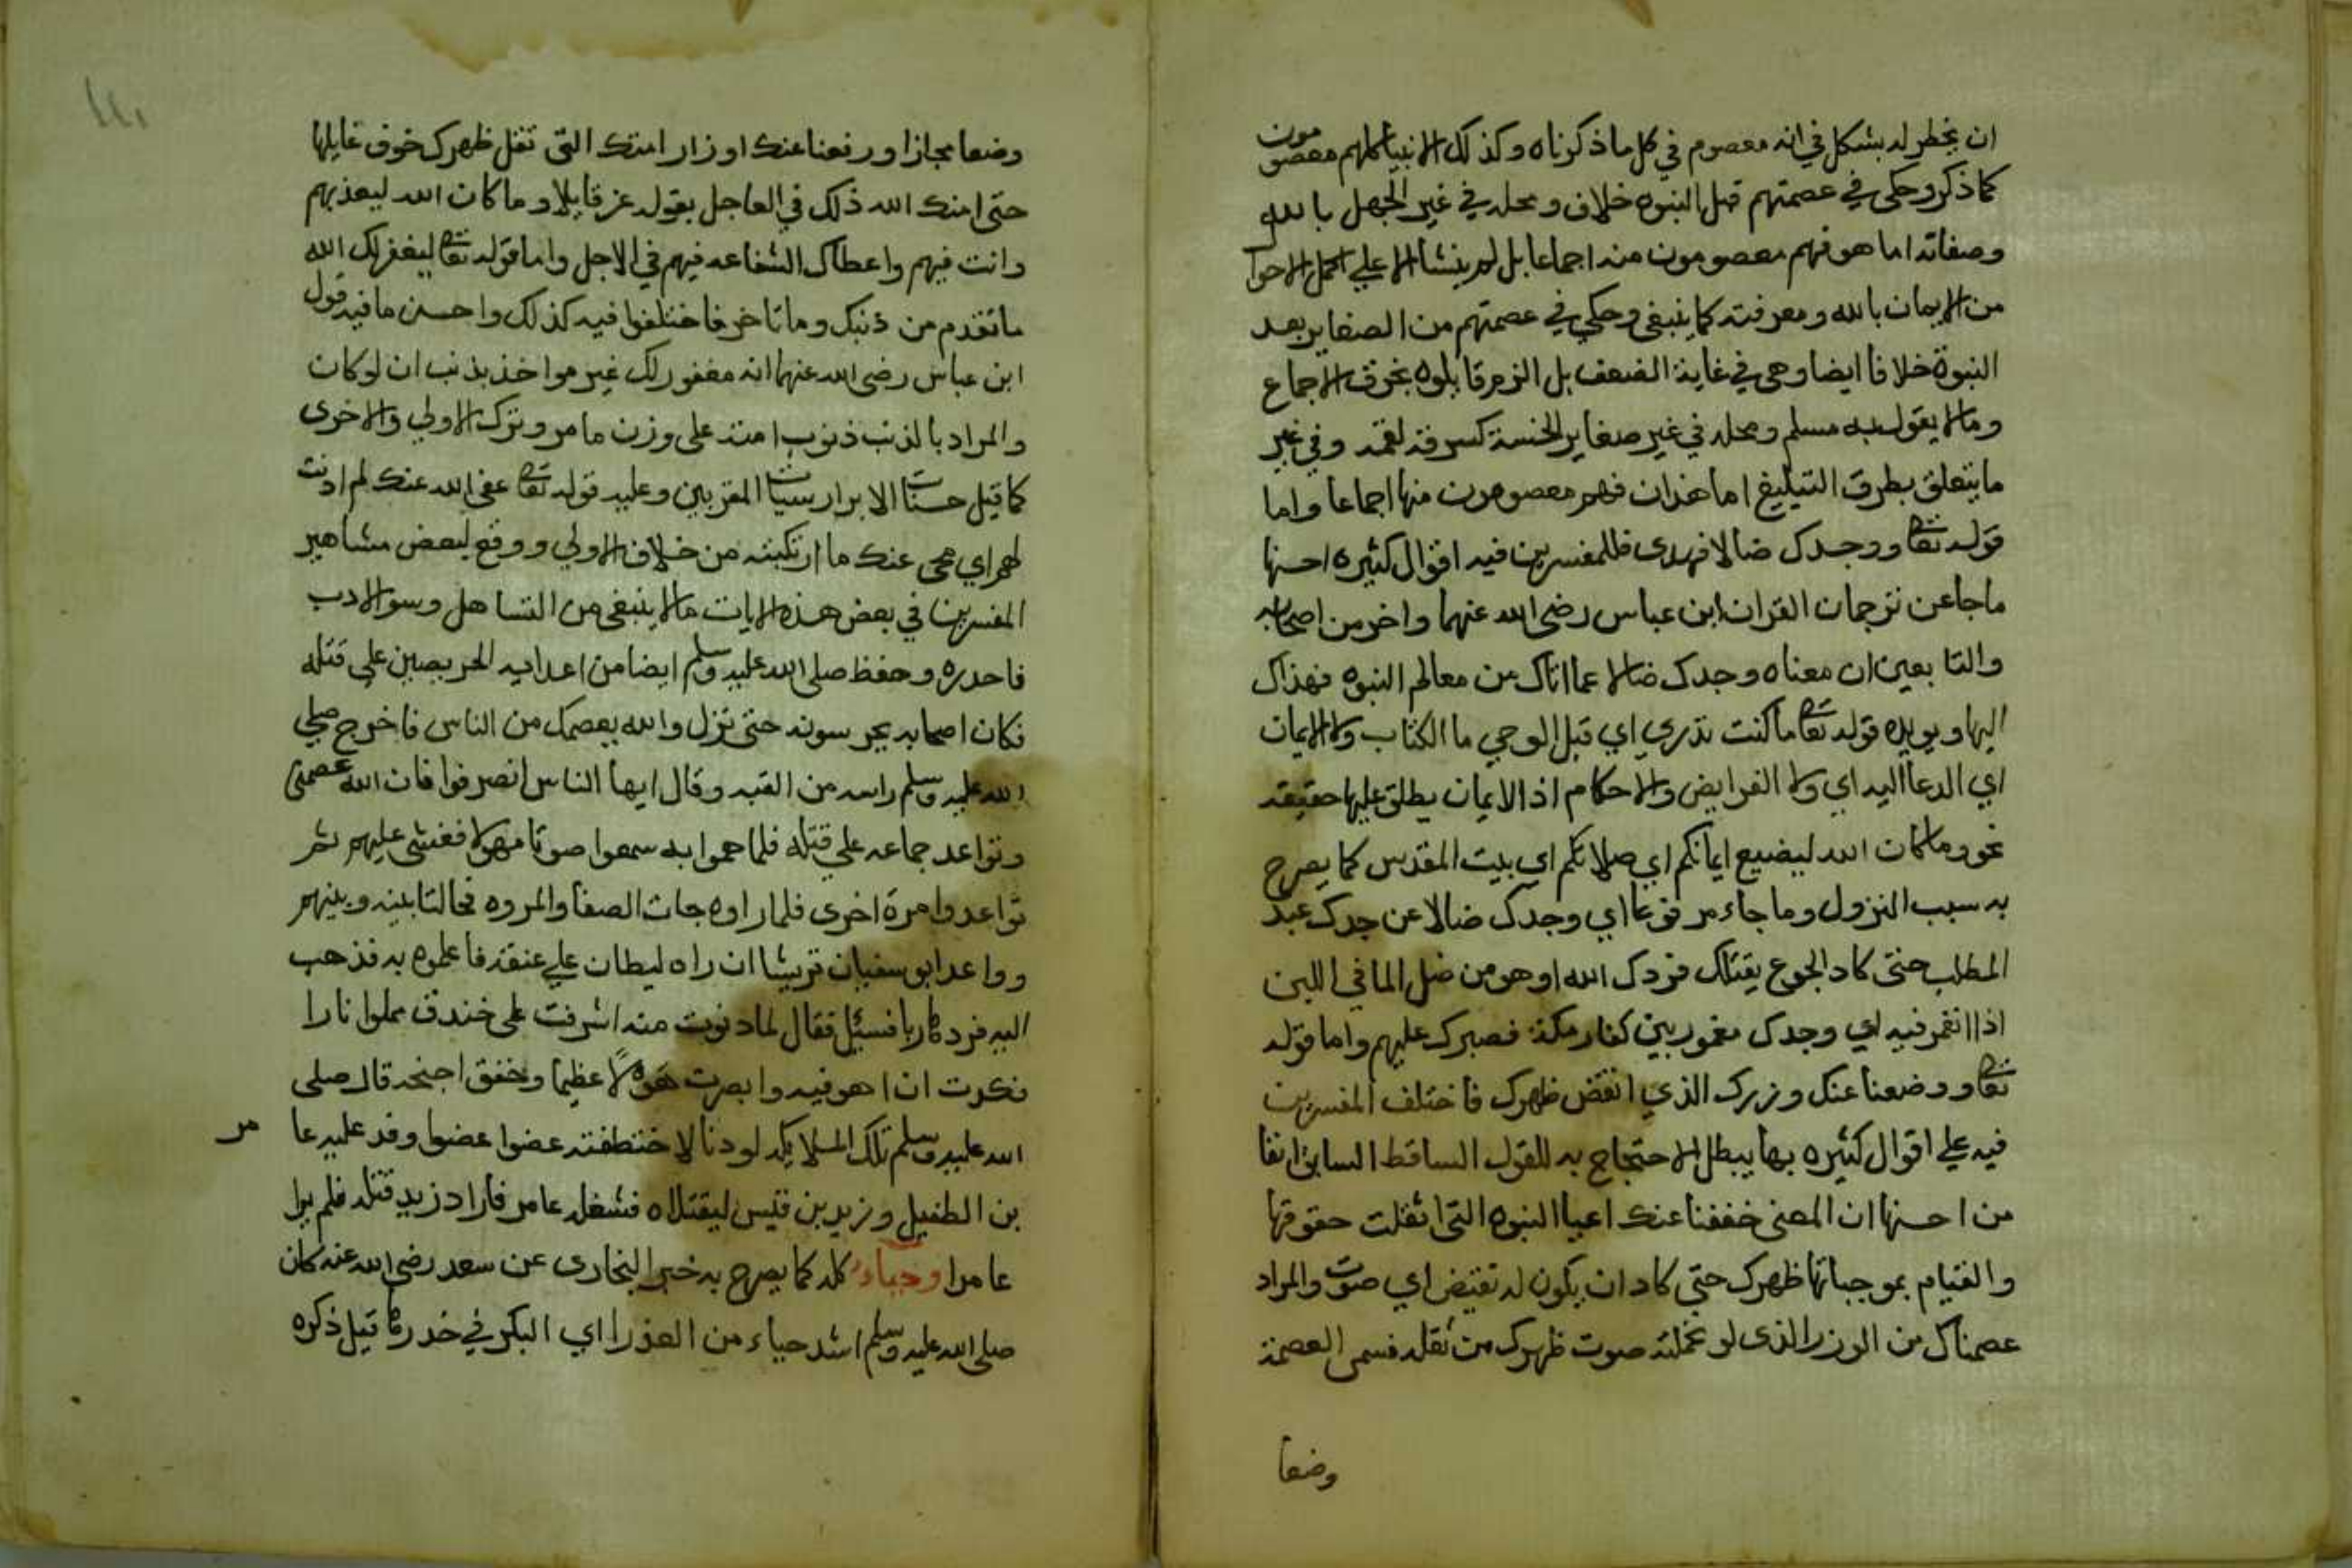 ان يخطر له بشكل في انه معصوم في كل ما ذكرناه وكذلك الانبيا كلهم معصومون
كما ذكر وحكى في عصمتهم قبل النبوه خلاف ومحله في غير الجهل بالله
وصفاته اما هو فهم معصومون منه اجماعا بل لم ينشا الا على اكمل الاحوا
من الايمان بالله ومعرفته كما ينبغي وحكي في عصمتهم من الصغاير بعد
النبوة خلافا ايضا وهي في غاية الضعف بل الزم قايلوه بخرق الاجماع
ومالا يقول به مسلم ومحله في غير صغاير الخسة كسرقة لقمه وفي غير
ما يتعلق بطرق التبليغ اما هذان فهم معصومون منها اجماعا واما
قوله تعا ووجدك ضالا فهدى فللمفسرين فيه اقوال كثيره احسنها
ما جا عن ترجمان القران ابن عباس رضي الله عنهما واخر من اصحابه
والتابعين ان معناه وجدك ضالا عما اتاك من معالم النبوه فهداك
اليها ويويده قوله تعا ما كنت تدري اي قبل الوحي ما الكتاب ولا الايمان
اي الدعا اليه اي ولا الفرايض والاحكام اذ الايمان يطلق عليها حقيقه
نحو وما كان الله ليضيع ايمانكم اي صلاتكم اي بيت المقدس كما يصرح
به سبب النزول وما جاء مرفوعا اي وجدك ضالا عن جدك عبد
المطلب حتى كاد الجوع يقتلك فردك الله او هو من ضل الما في اللبن
اذا انغمر فيه اي وجدك مغمور بين كفار مكة فصبرك عليهم واما قوله
تعا ووضعنا عنك وزرك الذي انقض ظهرك فاختلف المفسرين
فيه على اقوال كثيره بها يبطل الاحتجاج به للقول الساقط السابق انفا
من احسنها ان المعنى خففنا عنك اعيا النبوه التي اثقلت حقوقها
والقيام بموجباتها ظهرك حتى كاد ان يكون له نقيض اي صوت والمراد
عصمناك من الوزر الذي لو تحملته صوت ظهرك من ثقله فسمى العصمة
وضعا
وضعا مجازا ورفعنا عنك اوزار امتك التي تثقل ظهرك خوف غايلها
حتى امنك الله ذلك في العاجل بقوله عز قايلا وما كان الله ليعذبهم
وانت فيهم واعطاك الشفاعه فيهم في الاجل واما قوله تعا ليغفر لك الله
ما تقدم من ذنبك وما تاخر فاختلفوا فيه كذلك واحسن ما فيه قول
ابن عباس رضي الله عنهما انه مغفور لك غير مواخذ بذنب ان لو كان
والمراد بالذنب ذنوب امته على وزن ما مر وترك الاولي والاخرى
كما قيل حسنات الابرار سيئات المقربين وعليه قوله تعا عفى الله عنك لم اذنت
لهم اي محى عنك ما ارتكبته من خلاف الاولي ووقع لبعض مشاهير
المفسرين في بعض هذه الايات مالا ينبغي من التساهل وسو الادب
فاحدره وحفظ صلى الله عليه وسلم ايضا من اعدايه الحريصين على قتله
فكان اصحابه يحرسونه حتى نزل والله يعصمك من الناس فاخرج صلي
الله عليه وسلم راسه من القبه وقال ايها الناس انصرفوا فان الله عصمني
وتواعد جماعه على قتله فلما هموا به سمعوا صوتا مهولا فغشى عليهم ثم
تواعدوا مرة اخرى فلما راوه جات الصفا والمروه فحالتا بينه وبينهم
وواعد ابو سفيان قريشا ان راه ليطان على عنقه فاعلموه به فذهب
اليه فرد هاربا فسئل فقال لما دنوت منه اشرفت على خندق مملوا نارا
فكدت ان اهو فيه وابصرت هولا عظيما وخفق اجنحه قال صلى
الله عليه وسلم تلك الملايكه لو دنا لاختطفته عضوا عضوا وفد عليه عا
مر
بن الطفيل وزيد بن قيس ليقتلاه فشغله عامر فاراد زيد قتله فلم يرا
عامرا وحياء كله كما يصرح به خبر البخارى عن سعد رضي الله عنه كان
صلى الله عليه وسلم اشد حياء من العذرا اي البكر في خدرها قيل ذكره